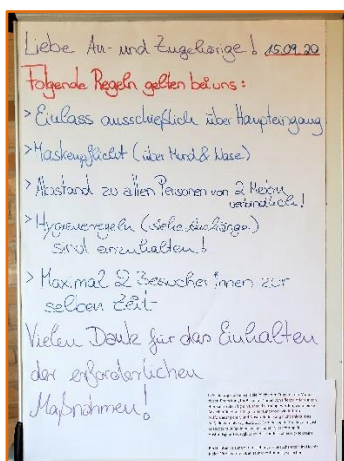 Liebe An- und Zugehörige! 15.09.20
Folgende Regeln gelten bei uns:
> Einlass ausschließlich über Haupteingang
> Maskenpflicht (über Mund & Nase)
> Abstand zu allen Personen von 2 Metern
verbindlich!
> Hygieneregeln (siehe Aushänge)
sind einzuhalten!
> Maximal 2 Besucher:innen zur
selben Zeit
Vielen Dank für das Einhalten
der erforderlichen
Maßnahmen!